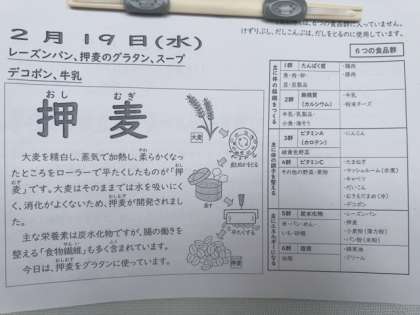 に入っていません。
けずりぶし、だしこんぶは、だしをとるのに使用しています。
2月19日(水)
レーズンパン、押麦のグラタン、スープ
デコポン、牛乳
押麦
おし むぎ
大麦
蒸す
平たくする
押麦
大麦を精白し、蒸気で加熱し、柔らかくなっ
たところをローラーで平たくしたものが「押
麦」です。大麦はそのままでは水を吸いにく
く、消化がよくないため、押麦が開発されまし
た。
主な栄養素は炭水化物ですが、腸の働きを
整える「食物繊維」も多く含まれています。
今日は、押麦をグラタンに使っています。
6つの食品群
主に体の組織をつくる
1群 たんぱく質
魚・肉・卵・
豆・豆製品
・鶏肉
・豚肉
2群 無機質
(カルシウム)
牛乳・乳製品・
小魚・海そう
・牛乳
・粉末チーズ
主に体の調子を整える
3群 ビタミンA
(カロテン)
緑黄色野菜
・にんじん
4群 ビタミンC
その他の野菜・果物
・たまねぎ
・マッシュルーム(水煮)
・キャベツ
・だいこん
・デコポン
主にエネルギーになる
5群 炭水化物
米・パン・めん・
いも・砂糖
・レーズンパン
・押麦
・小麦粉(薄力粉)
・パン粉(米粉)
6群 脂質
油脂
・クリーム